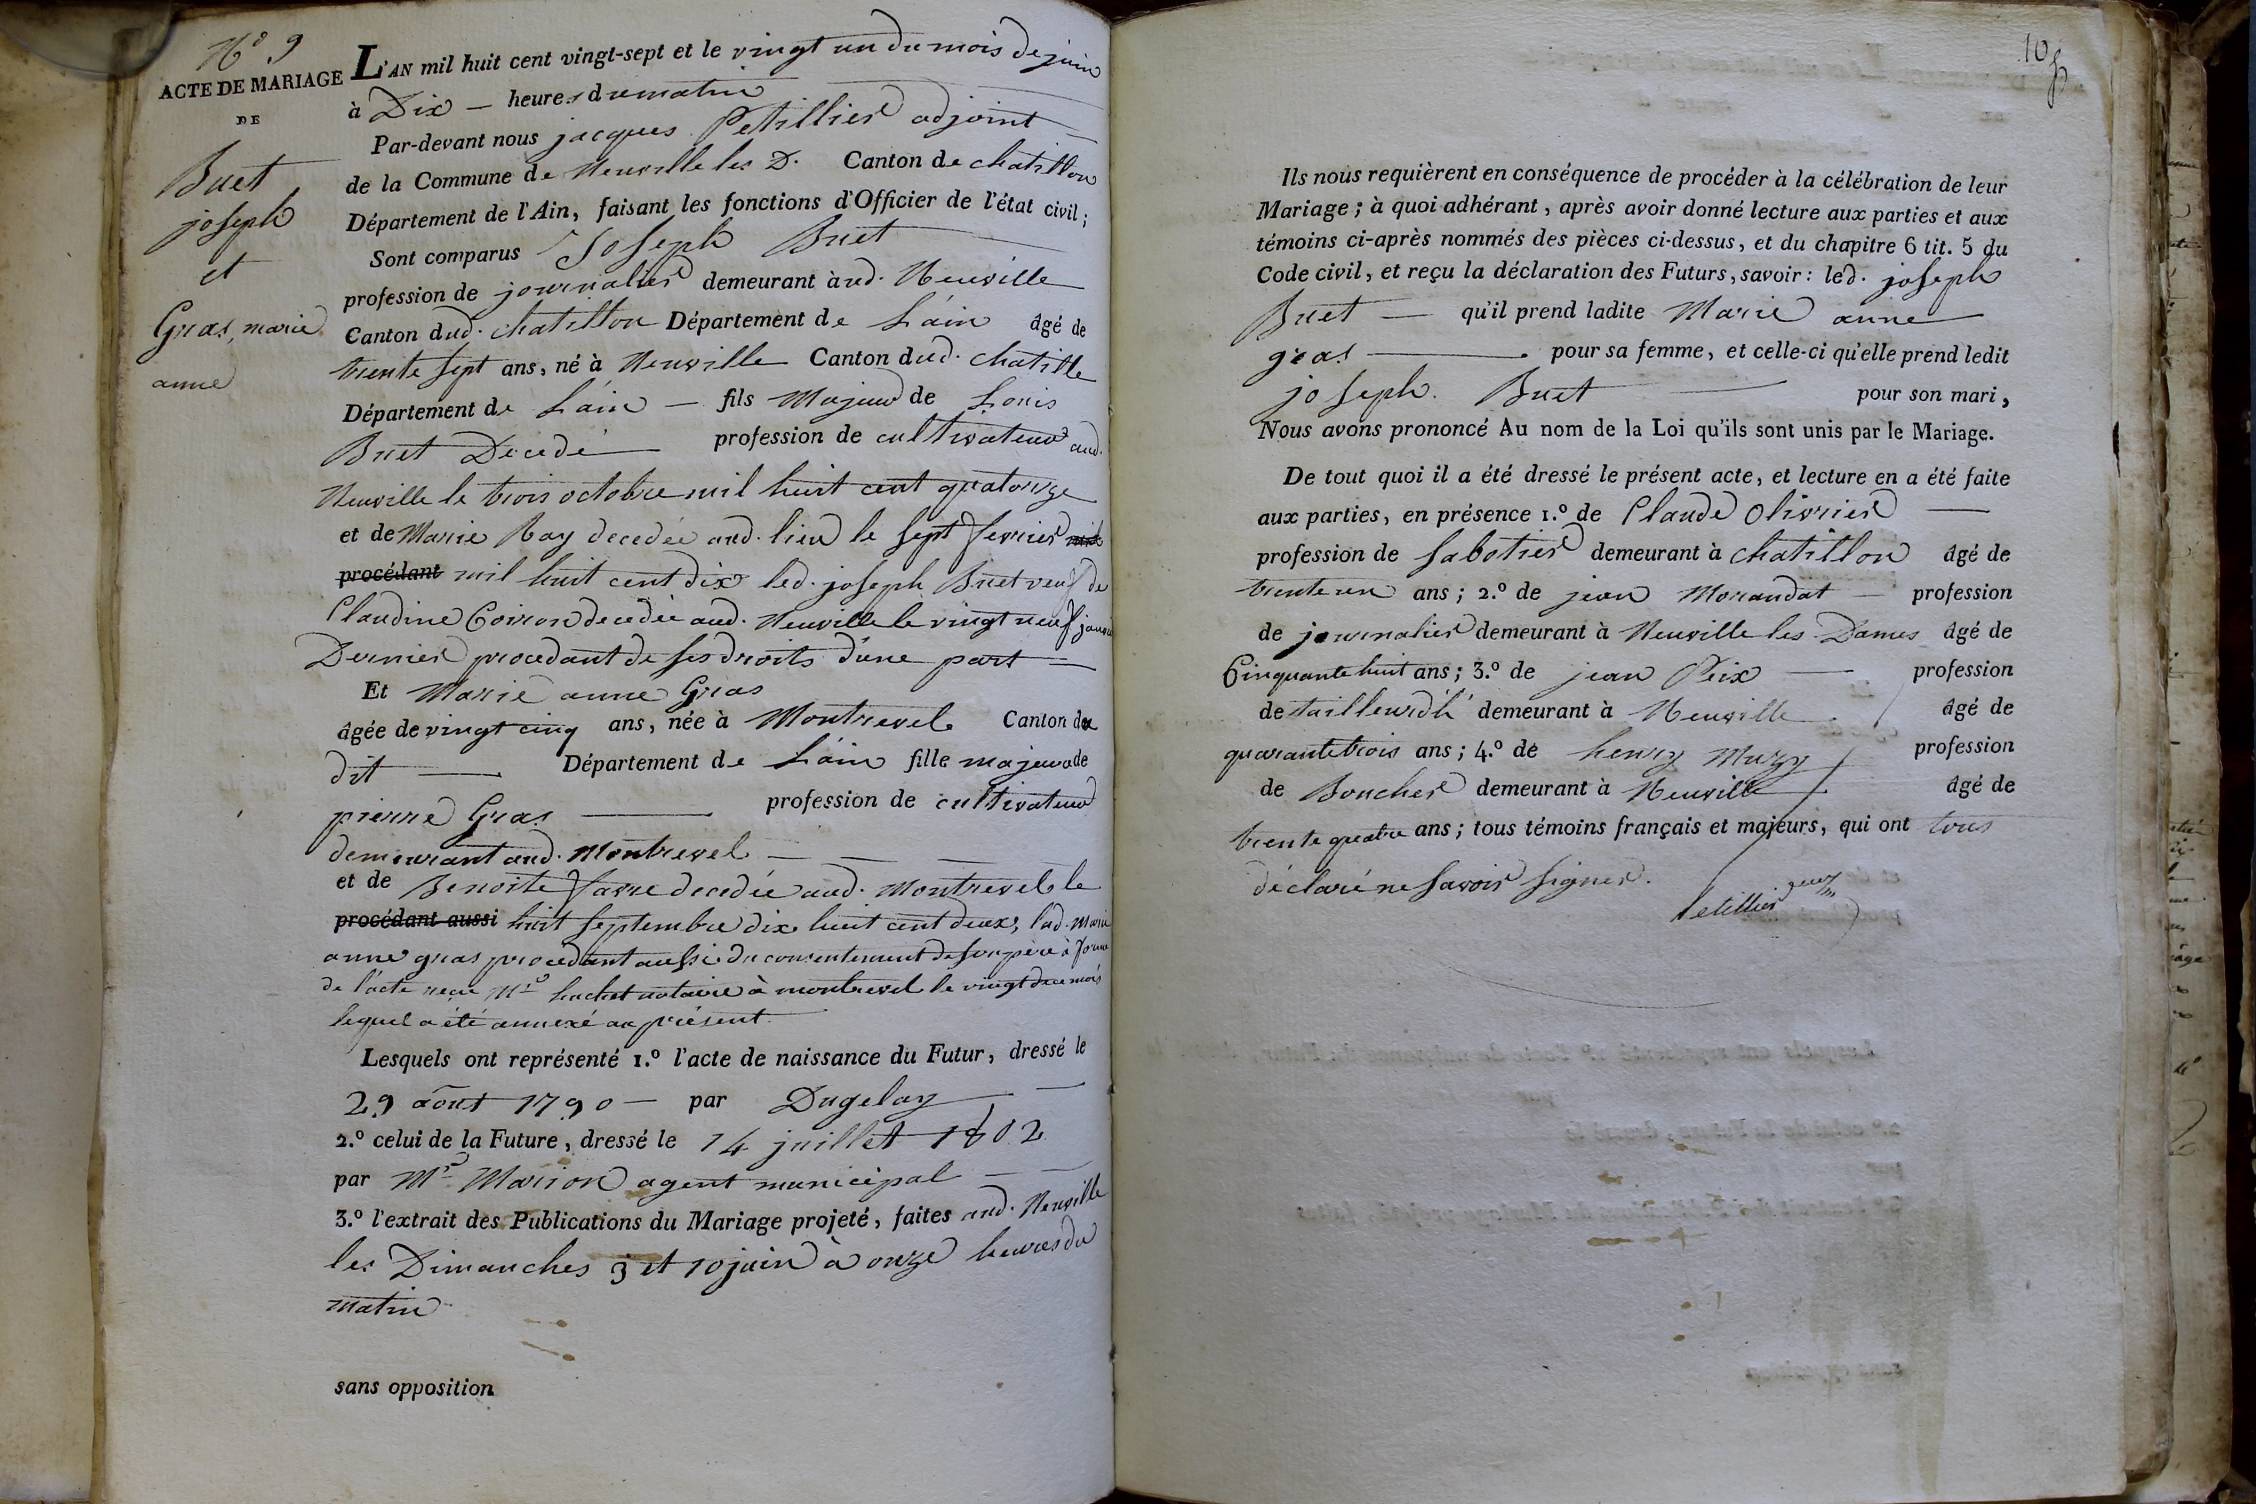 N.º 9
ACTE DE MARIAGE
DE
Buet
joseph
et
Gras, marie
anne
L'AN mil huit cent vingt-sept et le vingt un du mois de juin
à Dix — heures du matin
Par-devant nous jacques Petillier adjoint
de la Commune de Neuville les D. Canton de chatillon
Département de l'Ain, faisant les fonctions d'Officier de l'état civil;
Sont comparus Joseph Buet
profession de journalier demeurant aud. Neuville
Canton dud. chatillon Département de L'ain âgé de
trente sept ans, né à Neuville Canton dud. chatille
Département de L'ain — fils Majeur de Louis
Buet Decedé profession de cultivateur aud.
Neuville le trois octobre mil huit cent quatorze
et de Marie Ray decedée aud. lieu le sept fevrier mil
procédant mil huit cent dix led. joseph Buet veuf de
Claudine Coiron decedée aud. Neuville le vingt neuf janvier
Dernier procedant de ses droits d'une part —
Et Marie anne Gras
âgée de vingt cinq ans, née à Montrevel Canton du
dit — Département de L'ain fille majeure de
pierre Gras — profession de cultivateur
demeurant aud. Montrevel — — — —
et de Benoite favre decedée aud. Montrevel le
procédant aussi huit septembre dix huit cent deux, lad. Marie
anne gras procedant aussi du consentement de son père à forme
de l'acte reçu M.e huchet notaire à montrevel le vingt du mois
lequel a été annexé au présent.
Lesquels ont représenté 1.º l'acte de naissance du Futur, dressé le
29 aout 1790 — par Dugelay
2.º celui de la Future, dressé le 14 juillet 1802
par M.r Marion agent municipal — —
3.º l'extrait des Publications du Mariage projeté, faites aud. Neuville
les Dimanches 3 et 10 juin à onze heures du
matin
sans opposition
10
Ils nous requièrent en conséquence de procéder à la célébration de leur
Mariage; à quoi adhérant, après avoir donné lecture aux parties et aux
témoins ci-après nommés des pièces ci-dessus, et du chapitre 6 tit. 5 du
Code civil, et reçu la déclaration des Futurs, savoir: led. joseph
Buet — qu'il prend ladite Marie anne
gras — pour sa femme, et celle-ci qu'elle prend ledit
joseph. Buet — pour son mari,
Nous avons prononcé Au nom de la Loi qu'ils sont unis par le Mariage.
De tout quoi il a été dressé le présent acte, et lecture en a été faite
aux parties, en présence 1.º de Claude Olivrier —
profession de Sabotier demeurant à chatillon âgé de
trente un ans; 2.º de jean Morandat — profession
de journalier demeurant à Neuville les Dames âgé de
Cinquante huit ans; 3.º de jean Peix — profession
de tailleur d'h. demeurant à Neuville âgé de
quarante trois ans; 4.º de henry Muzy profession
de Boucher demeurant à Neuville âgé de
trente quatre ans; tous témoins français et majeurs, qui ont tous
déclaré ne savoir signer.
Petillier